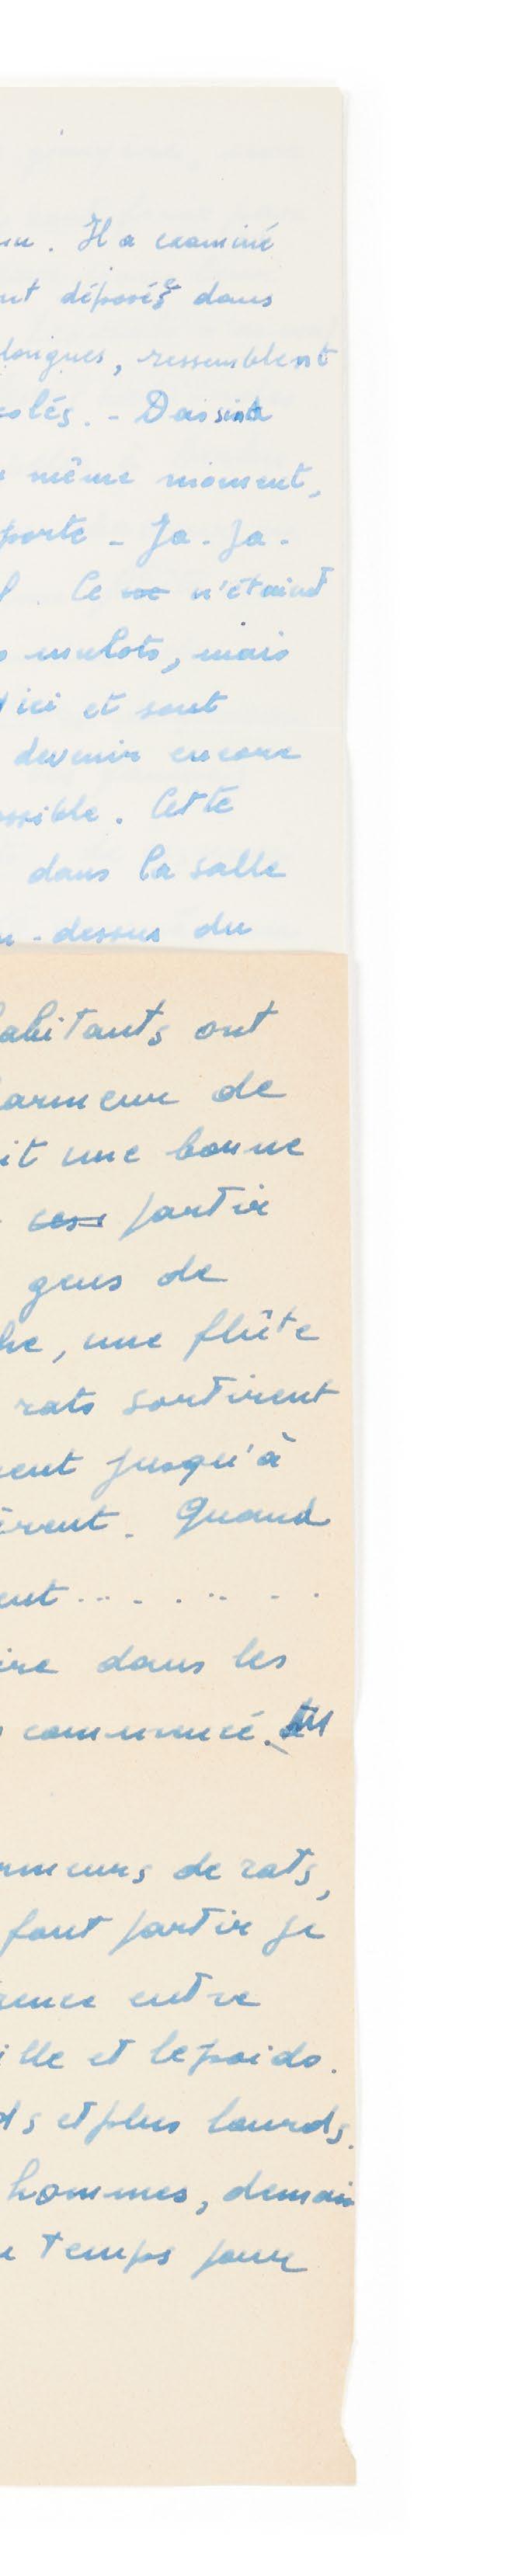 . Il a examiné
déposés dans
longues, ressemblent
colés. -
même moment,
porte - Ja. Ja.
Ce n'étaient
mulots, mais
d'ici et sont
devenir encore
possible. Cette
dans la salle
au-dessus du
habitants ont
armeur de
it une bonne
partir
gens de
he, une flûte
rats sortirent
ent jusqu'à
èrent. Quand
ent........
ire dans les
communié.
rmeurs de rats,
font partir je
rence entre
ille et le poids.
ds et plus lourds.
hommes, demain
temps pour